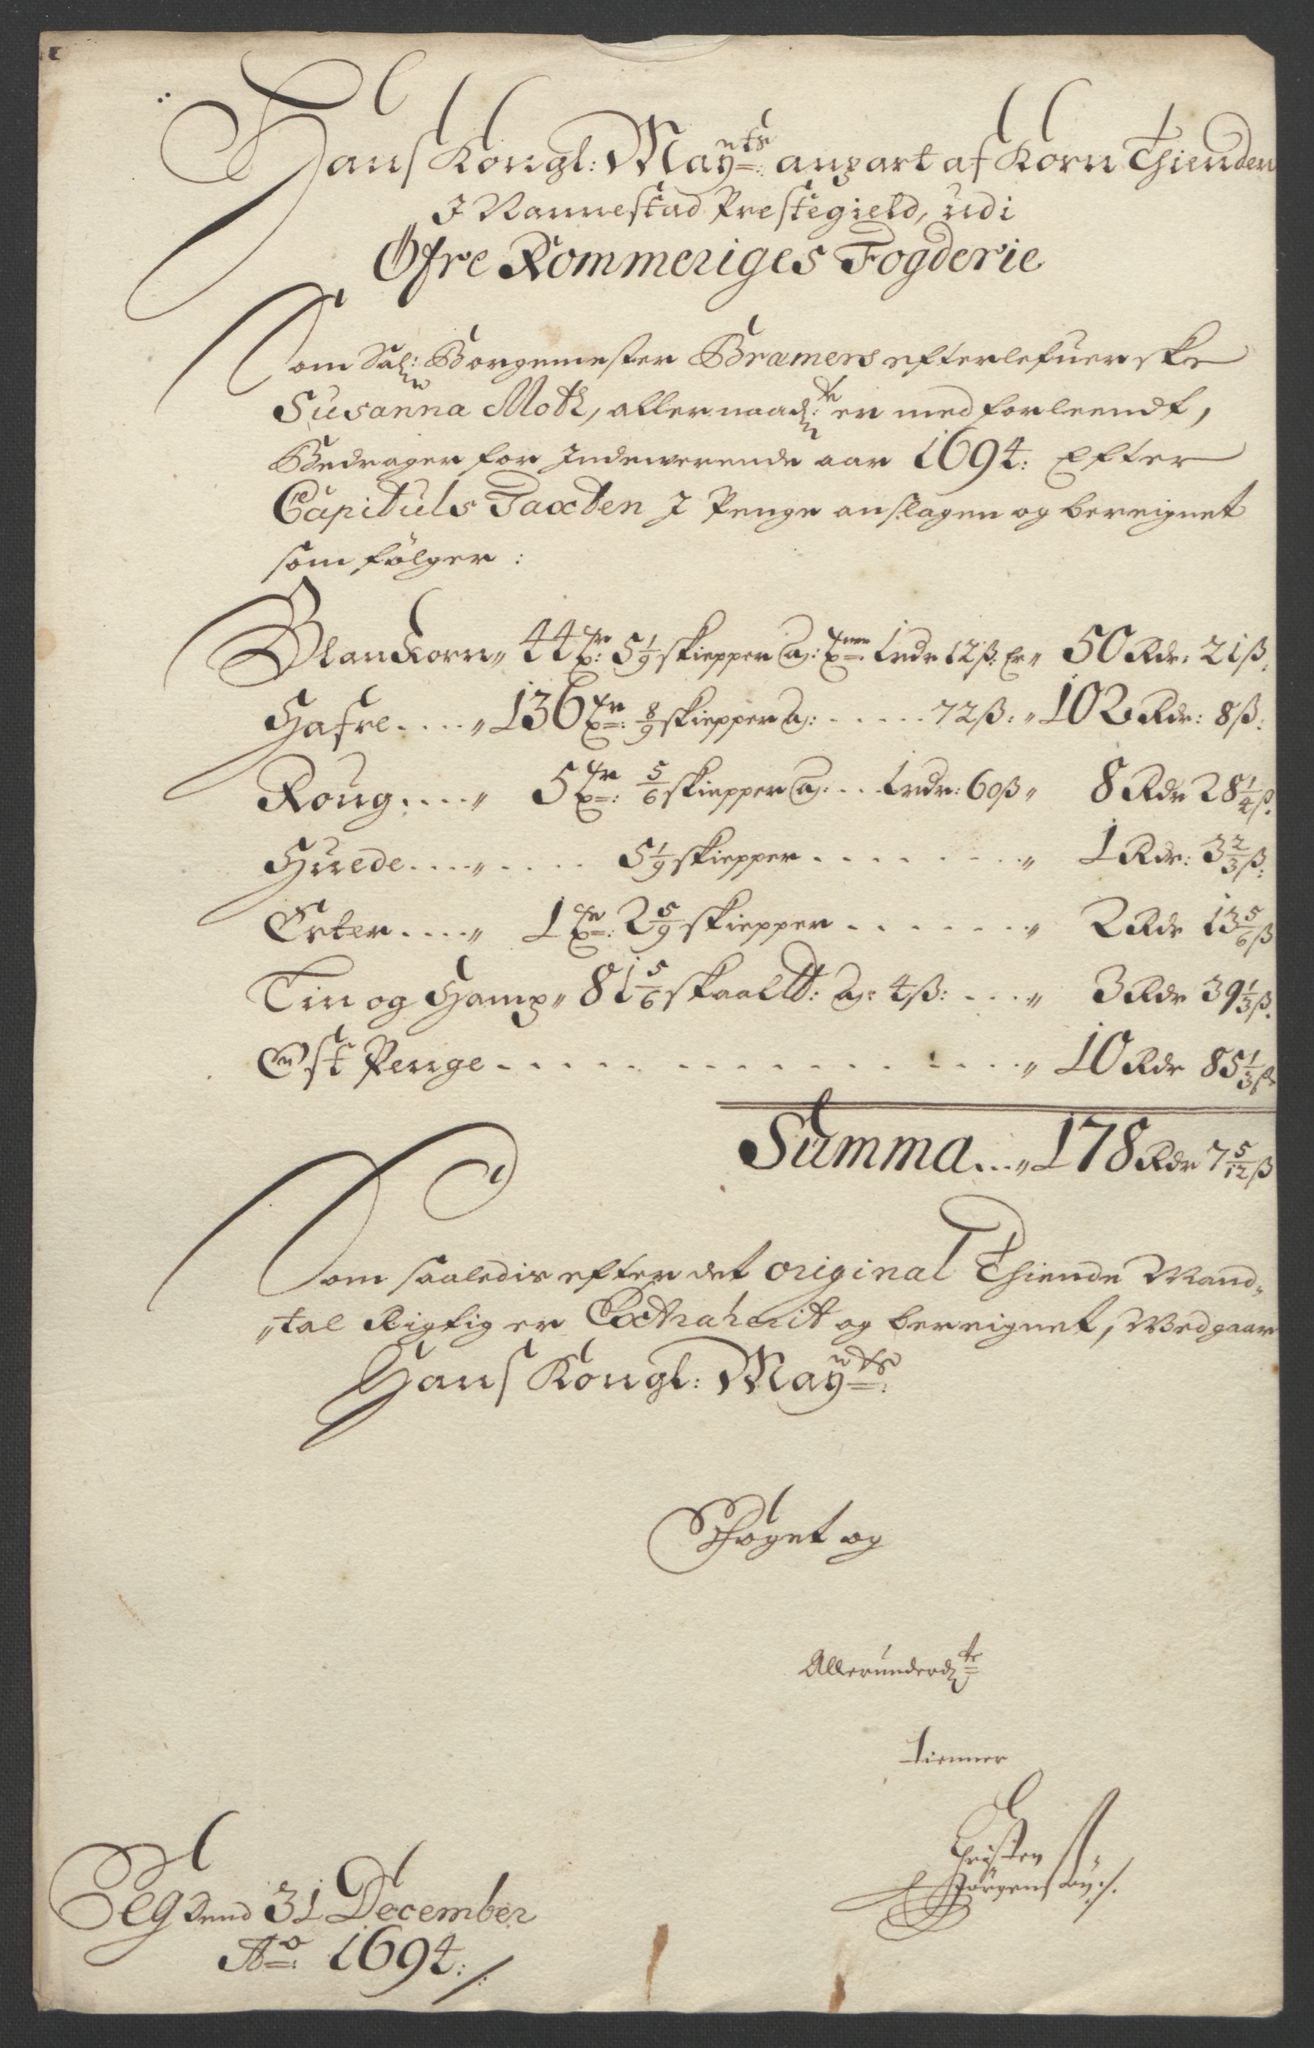 Hans Kongl: May:ts anpart af Korn Thienden
I Nannestad Prestegield, udi
Øfre Rommeriges Fogderie
Som Sal: Borgemester Bramers efterlefuerske
Susanna Moth, allernaad:te er med forleendt,
Bedrager for Indewerende aar 1694: Efter
Capituls Taxten I Penge anslagen og bereignet
som følger:
Blankorn „ 44 Tr: 5 1/9 skiepper a: Tnn 1 rdr 12 ß. Er „ 50 Rdr: 21 ß.
Hafre .... „ 136 Tr: 8/9 skiepper a: ...... 72 ß: „ 102 Rdr: 8 ß:
Roug .... „ 5 Tr: 5/6 skiepper a: ... 1 rdr: 60 ß „ 8 Rdr 28 1/4 ß.
Huede .... „ .... 5 1/9 skiepper ........ „ 1 Rdr: 3 2/3 ß:
Erter .... „ 1 Tr: 2 5/9 skiepper ...... „ 2 Rdr 13 5/6 ß
Lin og Hamp „ 81 5/6 skaal℔: a: 4 ß: .... „ 3 Rdr 39 1/3 ß.
Ost Penge .............. „ 10 Rdr 85 1/3 ß
Summa ... „ 178 Rdr 7 5/12 ß
Som saaledis efter det original Thiende Mand-
„tal Rigtig er Extraherit og bereignet, Wedgaar
Hans Kongl: May:ts
Foget og
Allerunderd:te
tienner
Christen
Jørgensøn
Teg dend 31 December
Ao: 1694: